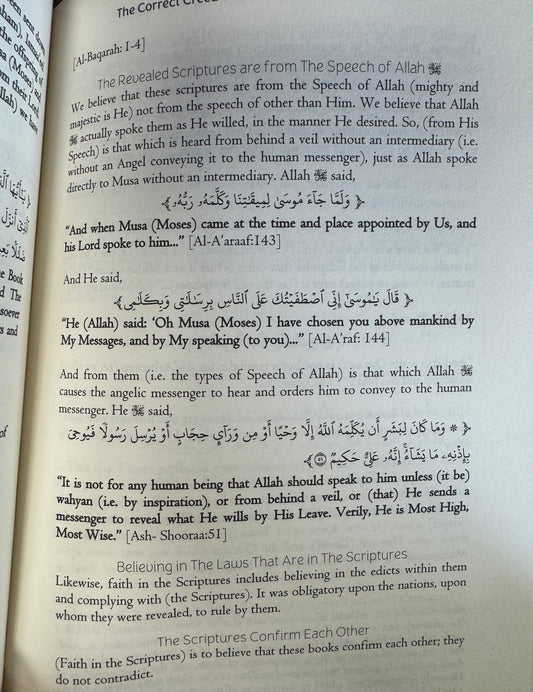 The Correct Creed
[Al-Baqarah: 1-4]
The Revealed Scriptures are from The Speech of Allah ﷻ
We believe that these scriptures are from the Speech of Allah (mighty and
majestic is He) not from the speech of other than Him. We believe that Allah
ﷻ actually spoke them as He willed, in the manner He desired. So, (from His
Speech) is that which is heard from behind a veil without an intermediary (i.e.
without an Angel conveying it to the human messenger), just as Allah spoke
directly to Musa without an intermediary. Allah ﷻ said,
﴿ وَلَمَّا جَآءَ مُوسَىٰ لِمِيقَٰتِنَا وَكَلَّمَهُۥ رَبُّهُۥ ﴾
“And when Musa (Moses) came at the time and place appointed by Us, and
his Lord spoke to him...” [Al-A’araaf:143]
And He said,
﴿ قَالَ يَٰمُوسَىٰٓ إِنِّي ٱصۡطَفَيۡتُكَ عَلَى ٱلنَّاسِ بِرِسَٰلَٰتِي وَبِكَلَٰمِي ﴾
“He (Allah) said: ‘Oh Musa (Moses) I have chosen you above mankind by
My Messages, and by My speaking (to you)...” [Al-A’raf: 144]
And from them (i.e. the types of Speech of Allah) is that which Allah ﷻ
causes the angelic messenger to hear and orders him to convey to the human
messenger. He ﷻ said,
﴿ * وَمَا كَانَ لِبَشَرٍ أَن يُكَلِّمَهُ ٱللَّهُ إِلَّا وَحۡيًا أَوۡ مِن وَرَآيِٕ حِجَابٍ أَوۡ يُرۡسِلَ رَسُولٗا فَيُوحِيَ
بِإِذۡنِهِۦ مَا يَشَآءُۚ إِنَّهُۥ عَلِيٌّ حَكِيمٞ ٥١ ﴾
“It is not for any human being that Allah should speak to him unless (it be)
wahyan (i.e. by inspiration), or from behind a veil, or (that) He sends a
messenger to reveal what He wills by His Leave. Verily, He is Most High,
Most Wise.” [Ash- Shooraa:51]
Believing in The Laws That Are in The Scriptures
Likewise, faith in the Scriptures includes believing in the edicts within them
and complying with (the Scriptures). It was obligatory upon the nations, upon
whom they were revealed, to rule by them.
The Scriptures Confirm Each Other
(Faith in the Scriptures) is to believe that these books confirm each other; they
do not contradict.